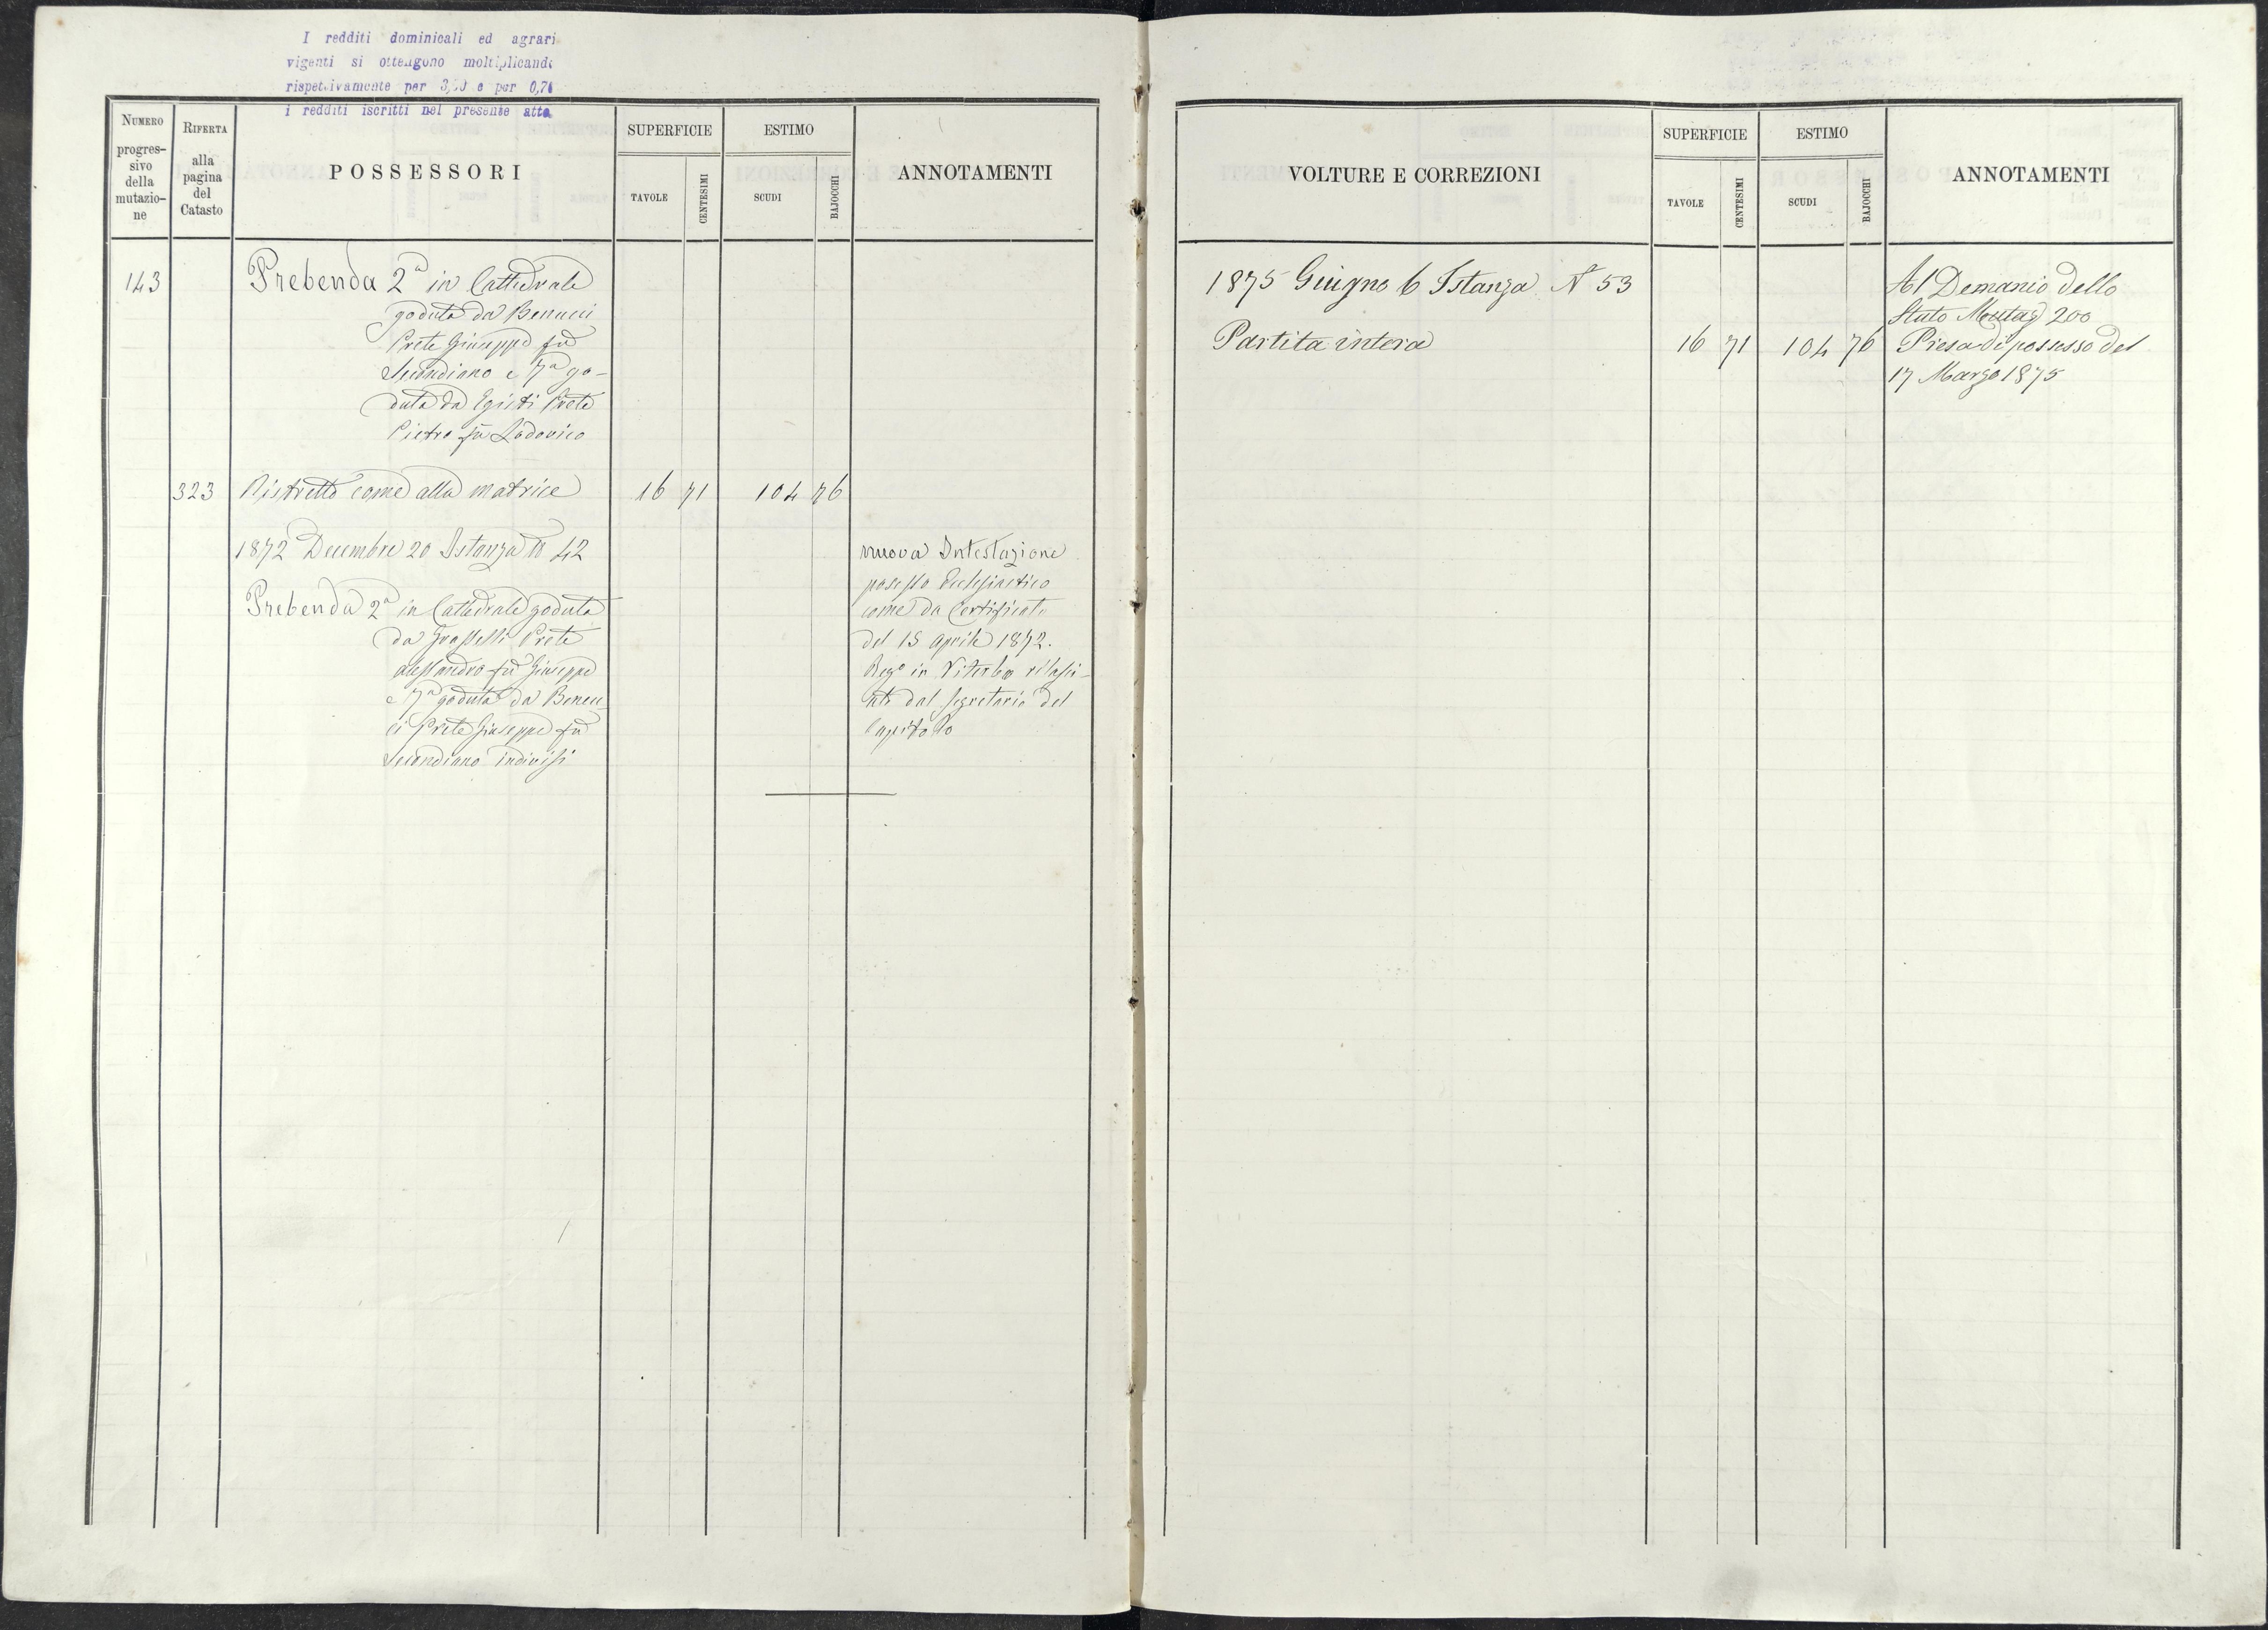 I redditi dominicali ed agrari
vigenti si ottengono moltiplicand
rispettivamente per 3, e per 0,7
i redditi iscritti nel presente atto
NUMERO
progres-
sivo
della
mutazio-
ne
RIFERTA
alla
pagina
del
Catasto
POSSESSORI
SUPERFICIE
TAVOLE
CENTESIMI
ESTIMO
SCUDI
BAJOCCHI
ANNOTAMENTI
143
Prebenda 2a in Cattedrale
goduta da Benucci
Prete Giuseppe fu
Secondiano e 7a go-
duta da Egisti Prete
Pietro fu Lodovico
323 Ristretto come alla matrice 16 71 104 76
1872 Decembre 20 Istanza N 42
Prebenda 2a in Cattedrale goduta
da Grasselli Prete
Alessandro fu Giuseppe
e 7a goduta da Benuc
ci Prete Giuseppe fu
Secondiano indivisi
nuova Intestazione
possesso Ecclesiastico
come da Certificato
del 15 Aprile 1872.
Rego in Viterbo rilascia-
to dal Segretario del
Capitolo
VOLTURE E CORREZIONI
SUPERFICIE
TAVOLE
CENTESIMI
ESTIMO
SCUDI
BAJOCCHI
ANNOTAMENTI
1875 Giugno 6 Istanza N 53
Partita intera 16 71 104 76
Al Demanio dello
Stato Mutag 200
Presa di possesso del
17 Marzo 1875